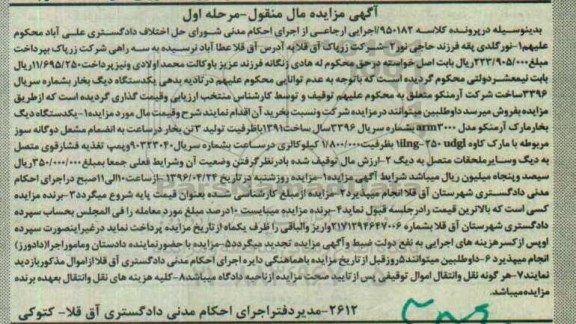 آگهی مزایده مال منقول-مرحله اول
بدینوسیله درپرونده کلاسه ۹۵۰۱۸۲/اجرایی ارجاعی از اجرای احکام مدنی شورای حل اختلاف دادگستری علی آباد محکوم
علیهم۱-نورگلدی پقه فرزند حاجی نور۲-شرکت زرپاک آق قلابه آدرس آق قلاعطا آباد نرسیده به سه راهی شرکت زرپاک بپرداخت
مبلغ۲۲۳/۹۰۵/۰۰۰ریال بابت اصل خواسته درحق محکوم له هادی زنگانه فرزند عزیز باوکالت محمد اولادی ونیز پرداخت۱۱/۶۹۵/۲۵۰ریال
بابت نیمعشردولتی محکوم گردیده است که باتوجه به عدم توانایی محکوم علیهم درتادیه بدهی یکدستگاه دیگ بخار بشماره سریال
۳۳۹۶ساخت شرکت آرمنکو متعلق به محکوم علیهم توقیف و توسط کارشناس منتخب ارزیابی وقیمت گذاری گردیده است که ازطریق
مزایده بفروش میرسد داوطلبین میتوانند درمزایده شرکت ونسبت بخرید آن اقدام نمایند شرح وقیمت مال مورد مزایده۱-یکدستگاه دیگ
بخارمارک آرمنکو مدل arm۳۰۰۰ بشماره سریال ۳۳۹۶ سال ساخت۱۳۹۱باظرفیت تولید ۳تن بخار درساعت به انضمام مشعل دوگانه سوز
مربوطه با مارک کاوه ilng-۲۵۰ udgl بظرفیت۱/۸۰۰/۰۰۰ کیلوکالری درساعت بشماره سریال۹۰۳۲۳۰۴۰وپمپ تغذیه فشارقوی متصل
به دیگ وسایرملحقات متصل به دیگ ۲-ارزش مال توقیف شده بادرنظرگرفتن وضعیت آن وشرایط فعلی جمعا بمبلغ۳۵۰/۰۰۰/۰۰۰ریال
سیصد وپنجاه میلیون ریال میباشد شرایط آگهی مزایده۱-مزایده روزشنبه در تاریخ ۱۳۹۶/۰۴/۲۴ ازساعت۱۰الی۱۱صبح دراجرای احکام
مدنی دادگستری شهرستان آق قلا انجام میپذیرد۲-مزایده ازمبلغ کارشناسی شده بعنوان قیمت پایه شروع میگردد۳-برنده مزایده
کسی است که بالاترین قیمت رادرجلسه قبول نماید۴-برنده مزایده میبایست ۱۰درصد مبلغ مورد معامله را فی المجلس بحساب سپرده
دادگستری شهرستان آق قلا بشماره ۲۱۷۱۲۹۲۶۴۷۰۰۶واریز والباقی را ظرف یکماه از تاریخ مزایده پرداخت نماید درغیراینصورت سپرده
اوپس ازکسر هزینه های اجرایی به نفع دولت ضبط وآگهی مزایده تجدید میگردد۵-مزایده با حضورنماینده دادستان وماموراجرا(دادورز)
انجام میپذیرد ۶-داوطلبین میتوانند۵روزقبل از تاریخ مزایده باهماهنگی دایره اجرای احکام مدنی دادگستری آق قلا ازاموال مذکوربازدید
نمایند۷-هر گونه نقل وانتقال اموال توقیفی پس از تایید صحت مزایده ازناحیه دادگاه میباشد۸-کلیه هزینه های نقل وانتقال بعهده برنده
مزایده میباشد.
۲۶۱۲-مدیردفتراجرای احکام مدنی دادگستری آق قلا- کتوکی